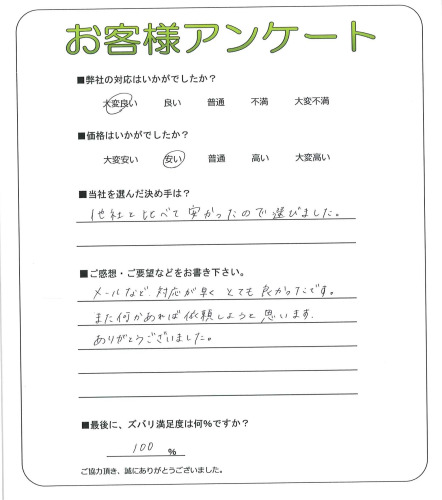 お客様アンケート
■弊社の対応はいかがでしたか？
大変良い　良い　普通　不満　大変不満
■価格はいかがでしたか？
大変安い　安い　普通　高い　大変高い
■当社を選んだ決め手は？
他社と比べて安かったので選びました。
■ご感想・ご要望などをお書き下さい。
メールなど、対応が早くとても良かったです。
また何かあれば依頼しようと思います。
ありがとうございました。
■最後に、ズバリ満足度は何%ですか？
100 %
ご協力頂き、誠にありがとうございました。